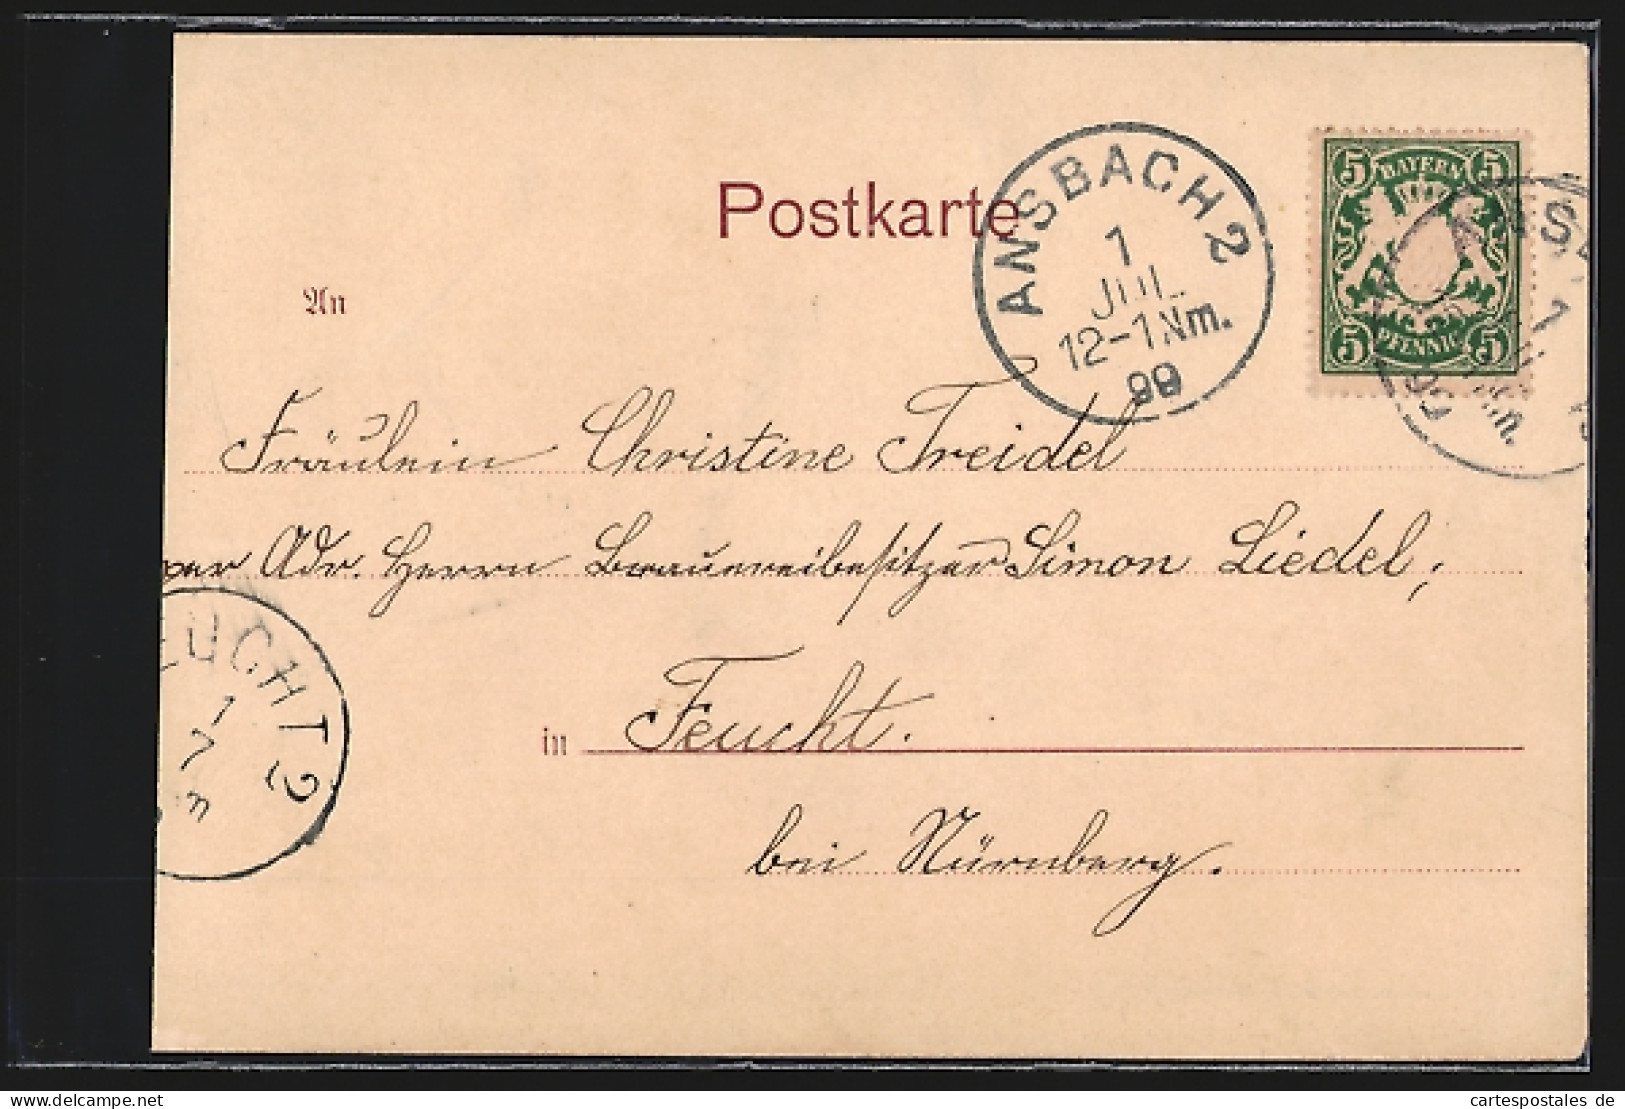 Postkarte
ANSBACH 2
1
JUL
12-1 Nm.
99
5 BAYERN 5
5 PFENNIG 5
An
Fräulein Christine Treidel
per Adr. Herrn Brauereibesitzer Simon Liedel,
FEUCHT 2
1
7
in Feucht.
bei Nürnberg.
cartespostales de